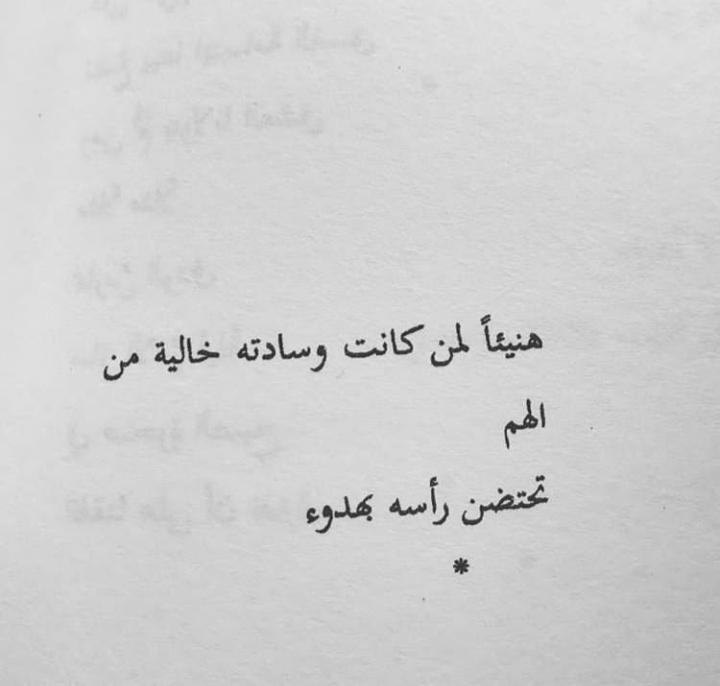 هنيئاً لمن كانت وسادته خالية من
الهم
تحتضن رأسه بهدوء
*